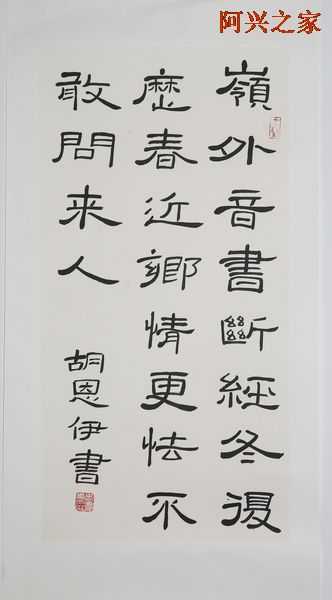 阿兴之家
嶺外音書斷經冬復
歷春近鄉情更怯不
敢問来人
胡恩伊書